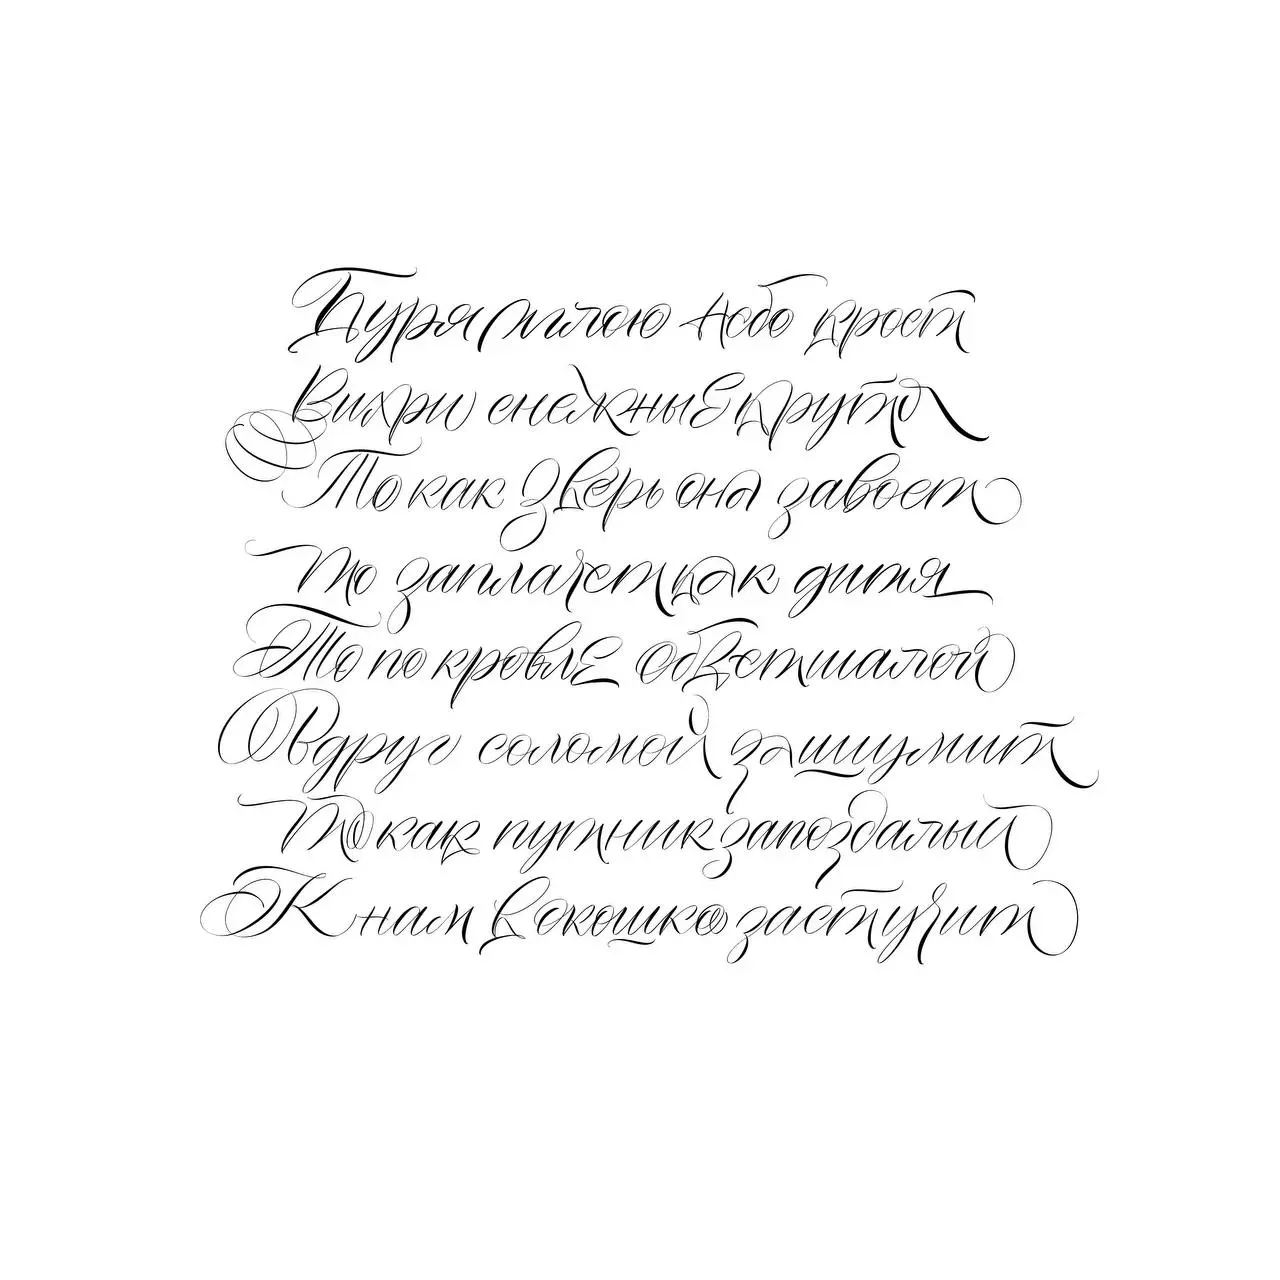 Буря мглою небо кроет
Вихри снежные крутя
То как зверь она завоет
То заплачет как дитя
То по кровле обветшалой
Вдруг соломой зашумит
То как путник запоздалый
К нам в окошко застучит